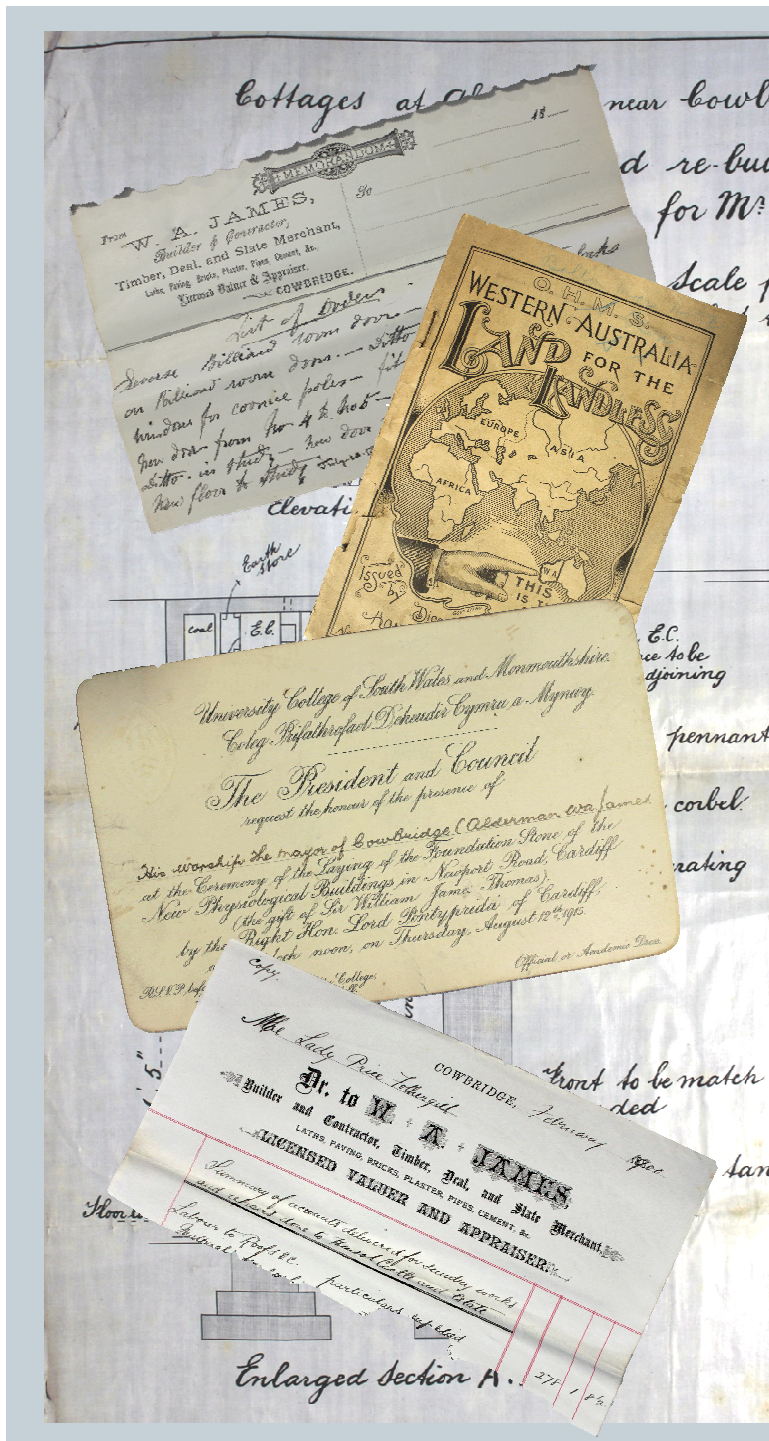 Cottages at near Cowb
d re-bu
for Mr.
Scale
MEMORANDUM
18
From
To
W. A. JAMES,
Builder & Contractor,
Timber, Deal, and Slate Merchant,
Laths, Paving, Bricks, Plaster, Pipes, Cement, &c.
Licensed Valuer & Appraiser.
COWBRIDGE.
List of Orders
Reverse Billiard room door —
on Billiard room door. — Ditto
windows for cornice poles — fit
new door from No 4 to No 5 —
Ditto in study — new door
New floor to study
O. H. M. S.
WESTERN AUSTRALIA
LAND FOR THE
LANDLESS
EUROPE
ASIA
AFRICA
W A
THIS
IS T
Issued
by
Elevati
Earth
Store
coal
E.C.
E.C.
ce to be
djoining
pennant
corbel.
rating
University College of South Wales and Monmouthshire.
Coleg Prifathrofaol Deheudir Cymru a Mynwy.
The President and Council
request the honour of the presence of
His worship the mayor of Cowbridge (Alderman WA James
at the Ceremony of the Laying of the Foundation Stone of the
New Physiological Buildings in Newport Road, Cardiff
(the gift of Sir William James Thomas),
by the Right Hon. Lord Pontypridd of Cardiff,
clock noon, on Thursday, August 12th 1915.
R.S.V.P. College,
Official or Academic Dress.
5"
Front to be match
ded
tan
Floor
copy.
COWBRIDGE, February 1900.
The Lady Price Fothergill
Dr. to W. A. JAMES,
Builder and Contractor, Timber, Deal, and Slate Merchant,
LATHS, PAVING, BRICKS, PLASTER, PIPES, CEMENT, &c.
LICENSED VALUER AND APPRAISER.
Summary of accounts delivered for sundry works
and repairs done to Hensol Castle and Estate
Labour to Roofs &c.
Material particulars supplied
278 1 8½
Enlarged Section A.